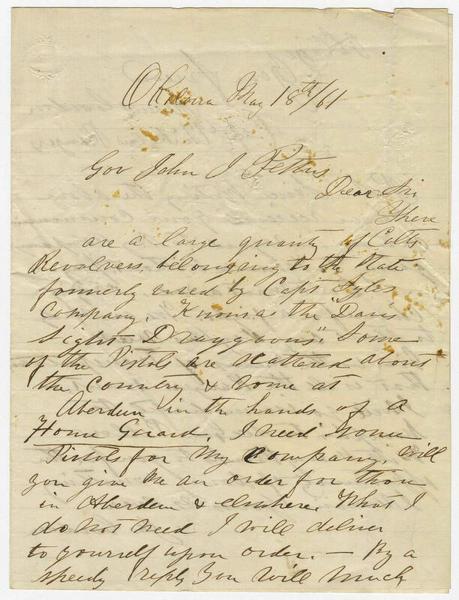 Okolona May 18th/61
Gov John J Pettus
Dear Sir
There
are a large quanty of Colts
Revolvers belonging to the State
formerly used by Capt Tylers
Company. Known as the "Davis
Light Draggoons". Some
of the Pistols are scattered about
the Country & some at
Aberdeen in the hands of a
Home Guard. I need some
Pistols for my Company. Will
you give me an order for those
in Aberdeen & elswhere. What I
do not need I will deliver
to yourself upon order. — By a
speedy reply you will much